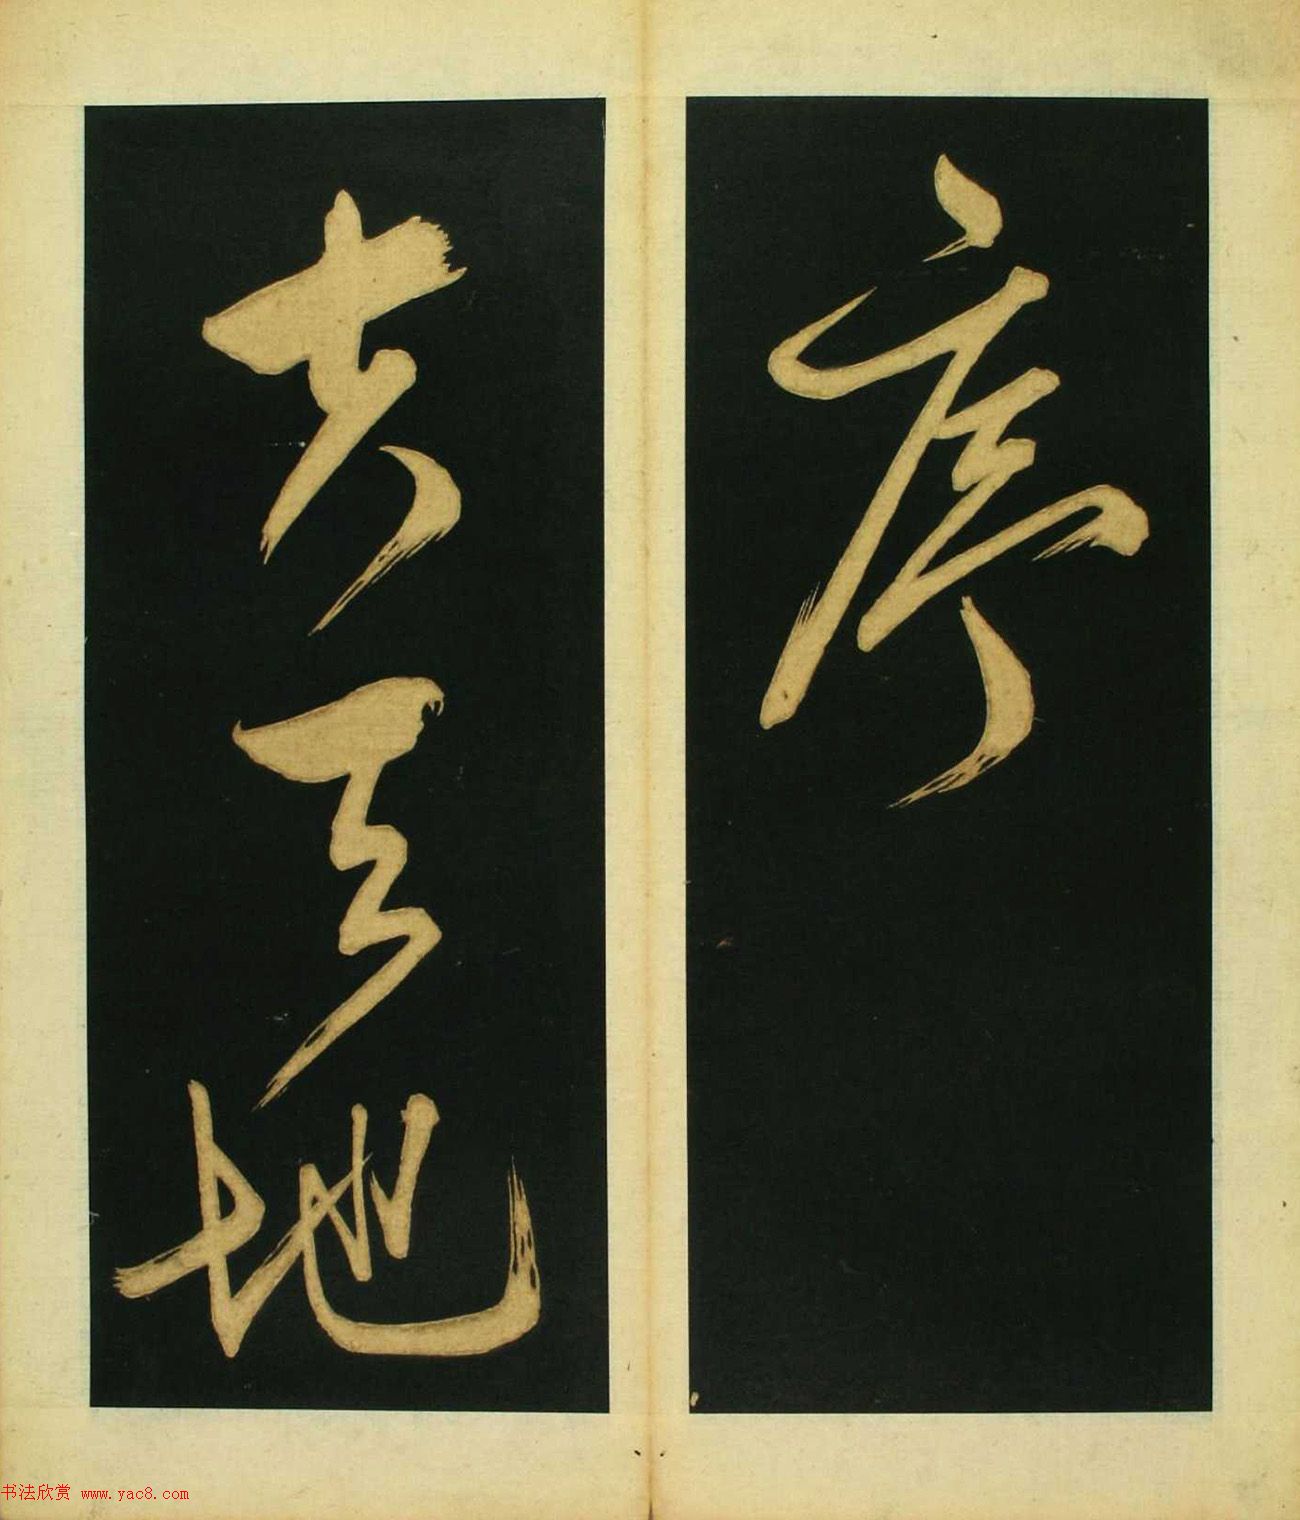 序
夫天地
书法欣赏 www.yac8.com